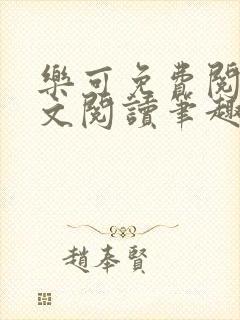 樂可免費閱
文閱讀筆趣
趙奉賢